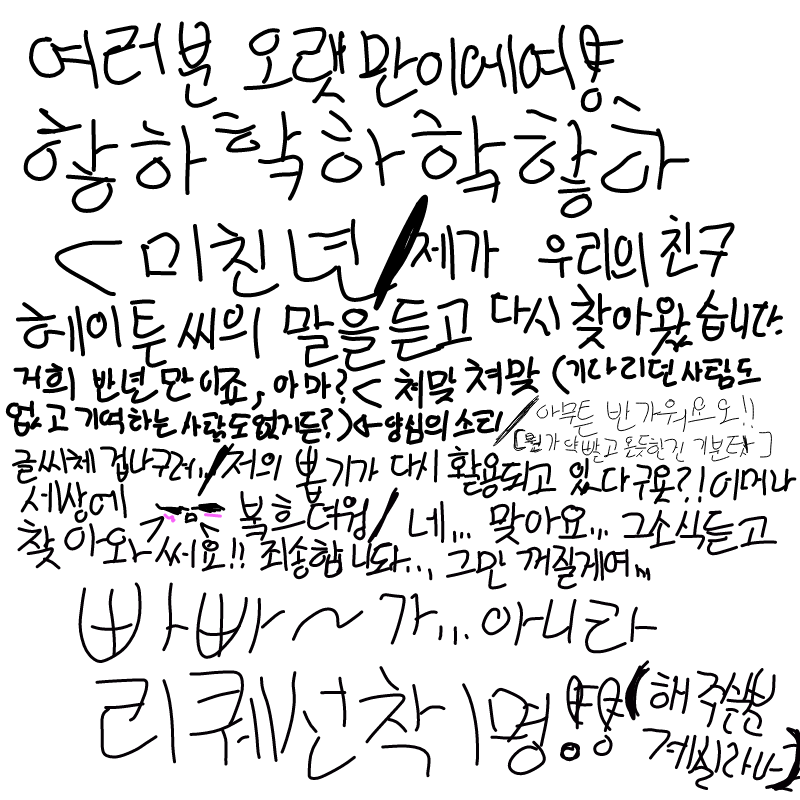 여러분 오랫만이에여!
핳하학하학핳하
<미친년/제가 우리의친구
헤이튼씨의 말을듣고 다시 찾아왔습니다.
거희 반년만이죠, 아마?< 쳐맞쳐맞 (기다리던 사람도
없고 기억하는 사람도없거든?)<-양심의 소리/아무튼 반가워요오!!
[뭔가 약빨고 온듯한건 기분탓]
글씨체 겁나구려../저의 본기가 다시 활용되고 있다구욧?! 어머나
세상에 복흐려웡/네... 맞아요... 그소식듣고
찾아와써요!! 죄송합니다... 그만 꺼질게여...
빠빠~가...아니라
리퀘선착1명!!(해주실분
계실라나)